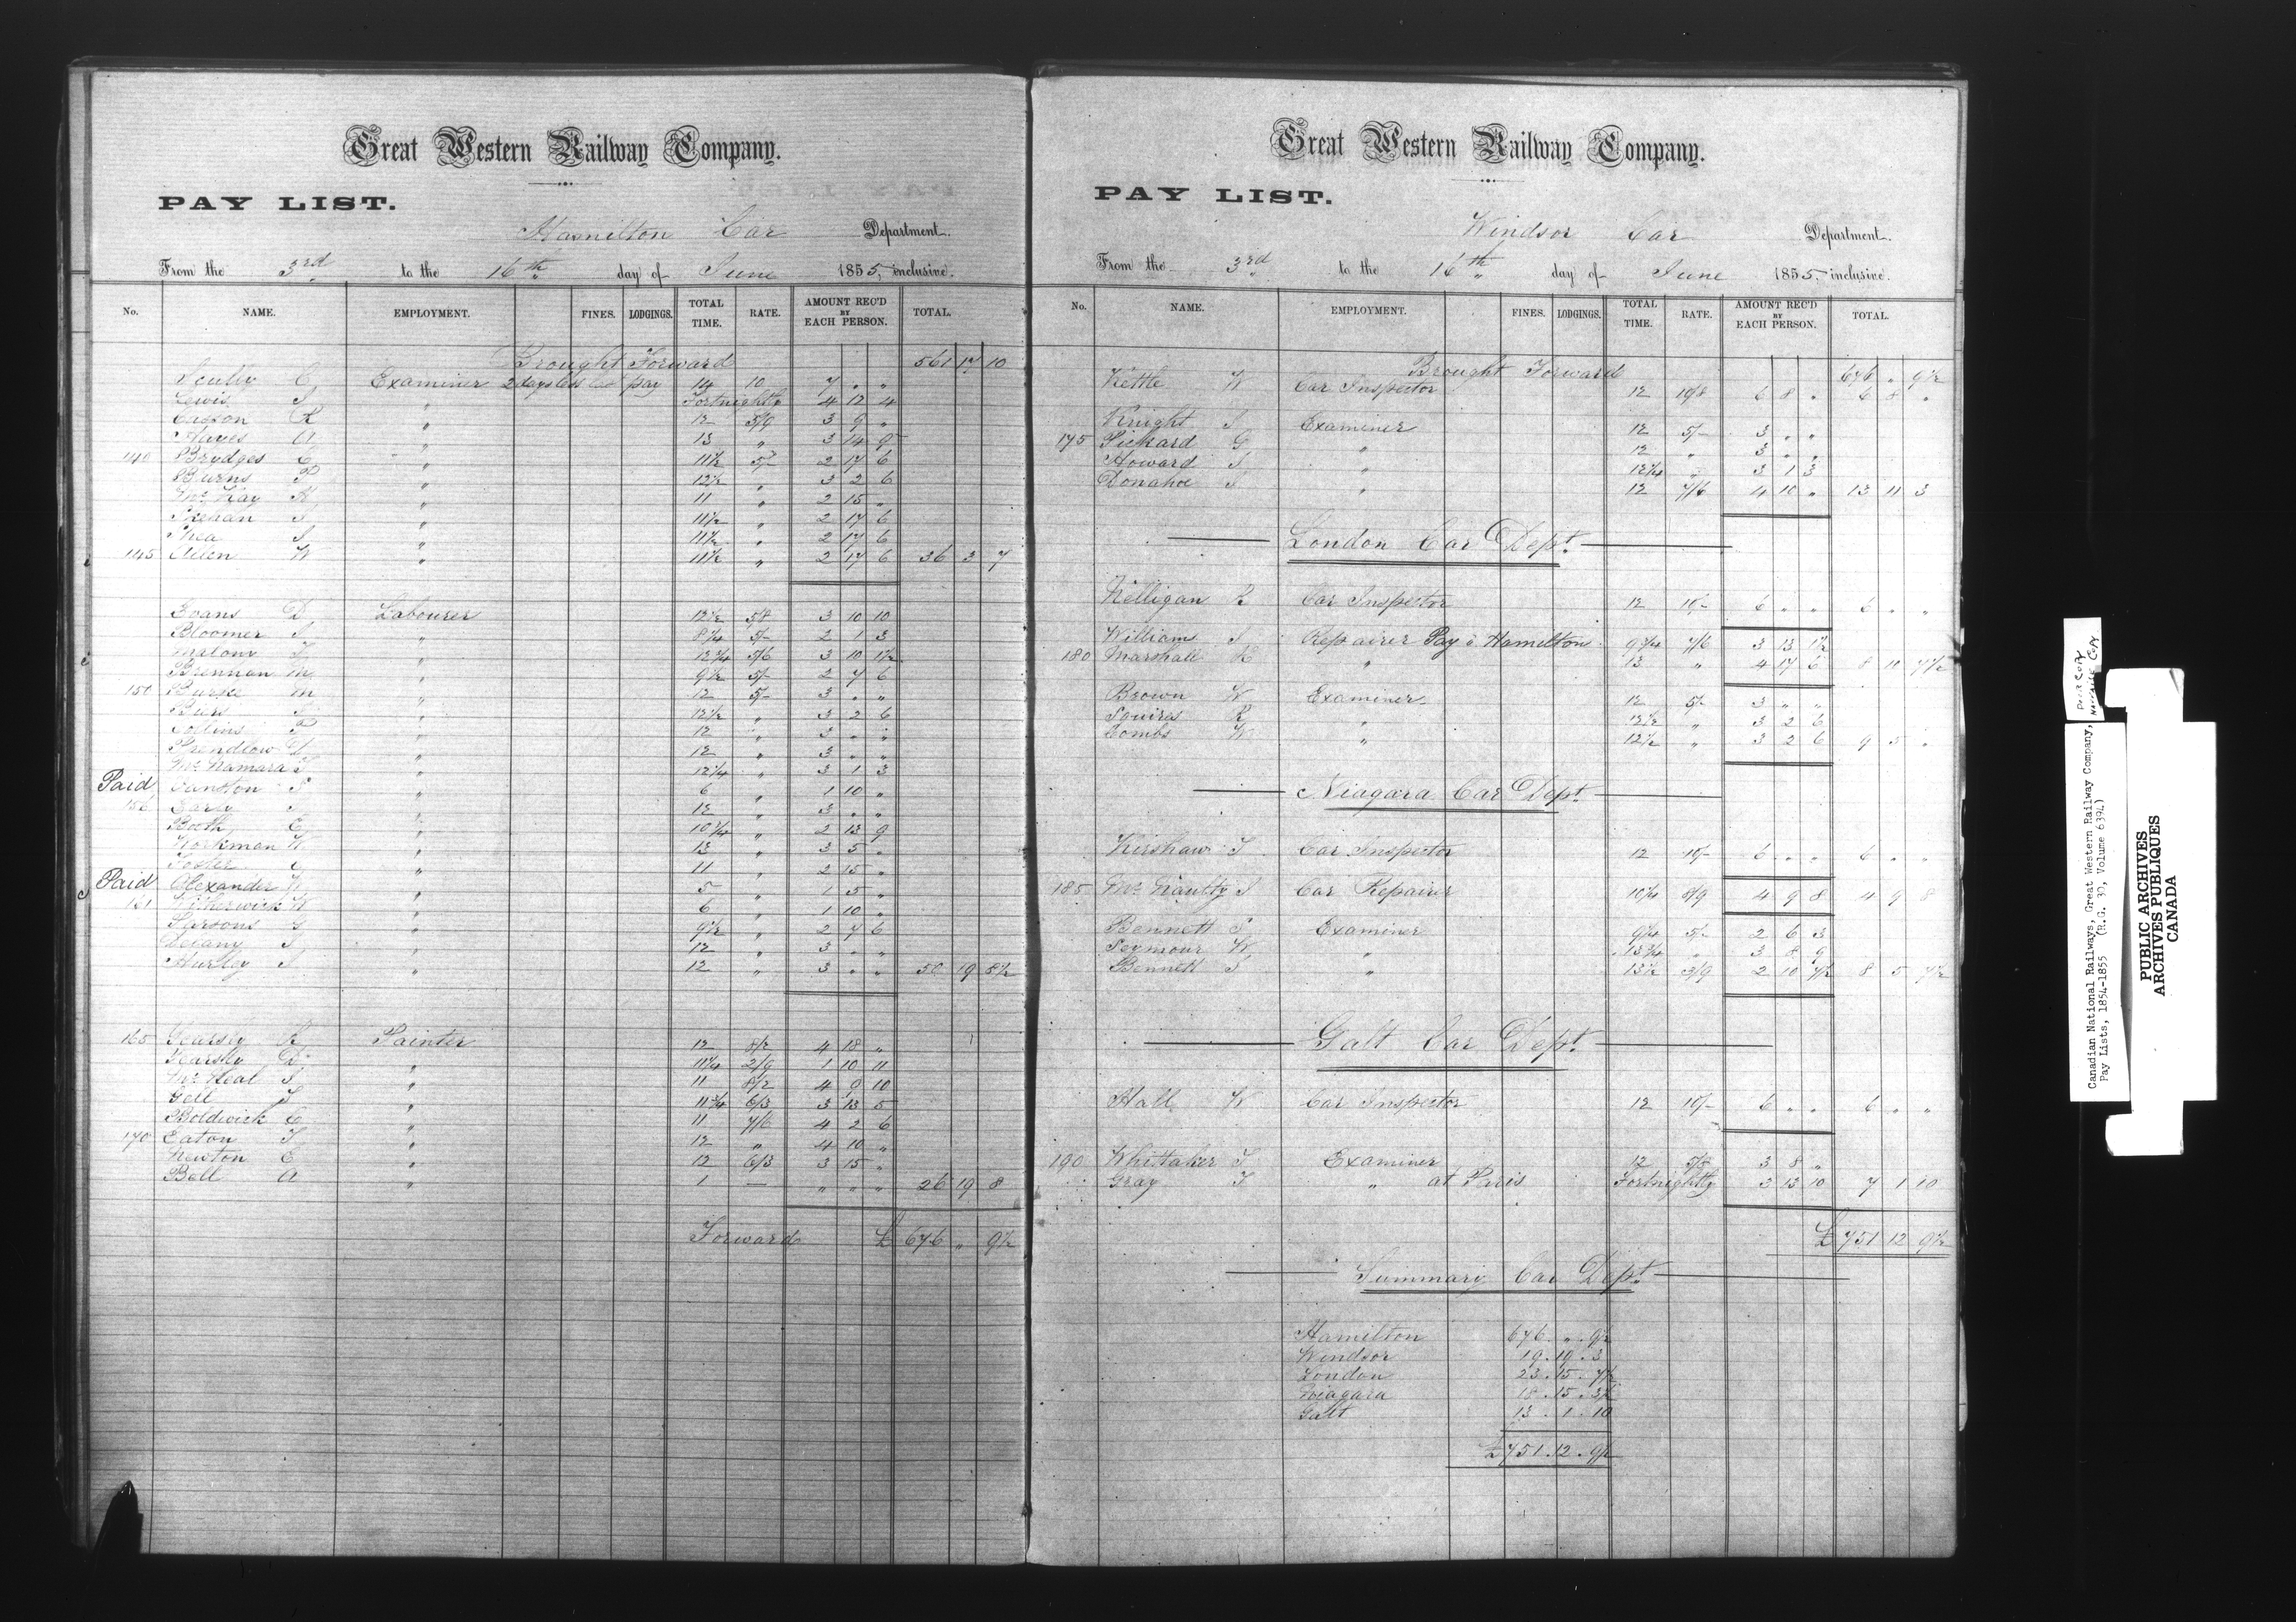 Great Western Railway Company.
PAY LIST.
Hamilton Car Department.
From the 3rd to the 16th day of June 1855, inclusive.
No. NAME. EMPLOYMENT. FINES. LODGINGS. TOTAL TIME. RATE. AMOUNT REC'D BY EACH PERSON. TOTAL.
Brought Forward 561 17 10
Scully C Examiner 2 days less pay 14 10 7 " "
Lewis J " Fortnightly 4 12 4
Casson R " 12 5/9 3 9 "
Hayes A " 13 " 3 14 9
140 Brydges C " 11½ 5/- 2 17 6
Burns P " 12½ " 3 2 6
McKay H " 11 " 2 15 "
Skehan J " 11½ " 2 17 6
Shea J " 11½ " 2 17 6
145 Allen W " 11½ " 2 17 6 36 3 7
Evans D Labourer 12½ 5/8 3 10 10
Bloomer J " 8¼ 5/- 2 1 3
Malony " 12¾ 5/6 3 10 1½
Brennan M " 9½ 5/- 2 7 6
150 Burke M " 12 5/- 3 " "
" 12½ " 3 2 6
Collins P " 12 " 3 " "
Prendlow " 12 " 3 " "
McNamara J " 12¼ " 3 1 3
Paid Canston J " 6 " 1 10 "
156 Early J " 12 " 3 " "
Booth C " 10¾ " 2 13 9
Workman W " 13 " 3 5 "
Foster C " 11 " 2 15 "
Paid Alexander W " 5 " 1 5 "
161 W " 6 " 1 10 "
Parsons J " 9½ " 2 7 6
Delany J " 12 " 3 " "
Hurley J " 12 " 3 " " 50 19 8½
165 Yearsly R Painter 12 8/2 4 18 "
Yearsly D " 11¼ 2/9 1 10 11
McHeal J " 11 8/2 4 9 10
Gell J " 11¾ 6/3 3 13 5
Boldwick C " 11 7/6 4 2 6
170 Eaton J " 12 " 4 10 "
Newton E " 12 6/3 3 15 "
Ball A " 1 — " " " 26 19 8
Forward £ 676 " 9½
Great Western Railway Company.
PAY LIST.
Windsor Car Department.
From the 3rd to the 16th day of June 1855, inclusive.
No. NAME. EMPLOYMENT. FINES. LODGINGS. TOTAL TIME. RATE. AMOUNT REC'D BY EACH PERSON. TOTAL.
Brought Forward 676 " 9½
Kettle W Car Inspector 12 10/8 6 8 " 6 8 "
Knight J Examiner 12 5/- 3 " "
175 Pickard G " 12 " 3 " "
Howard J " 12¼ " 3 1 3
Donahoe J " 12 7/6 4 10 " 13 11 3
London Car Dept.
Kelligan R Car Inspector 12 10/- 6 " " 6 " "
William J Repairer Pay @ Hamilton 9¾ 7/6 3 13 1½
180 Marshall R " 13 " 4 17 6 8 10 7½
Brown W Examiner 12 5/- 3 " "
Squires R " 12½ " 3 2 6
Combs W " 12½ " 3 2 6 9 5 "
Niagara Car Dept.
Kershaw J Car Inspector 12 10/- 6 " " 6 " "
185 McNaulty J Car Repairer 10¼ 8/9 4 9 8 4 9 8
Bennett J Examiner 9¼ 5/- 2 6 3
Seymour W " 13¾ " 3 8 9
Bennett J " 13½ 3/9 2 10 7½ 8 5 7½
Galt Car Dept.
Hall W Car Inspector 12 10/- 6 " " 6 " "
190 Whittaker J Examiner 12 5/8 3 8 "
Gray J " at Paris Fortnightly 3 13 10 7 1 10
£ 751 12 9½
Summary Car Dept.
Hamilton 676 . " . 9½
Windsor 19 . 19 . 3
London 23 . 15 . 7½
Niagara 18 . 15 . 3½
Galt 13 . 1 . 10
£751 . 12 . 9½
Canadian National Railways, Great Western Railway Company,
Pay Lists, 1854-1855 (R.G. 30, Volume 6394)
PUBLIC ARCHIVES
ARCHIVES PUBLIQUES
CANADA